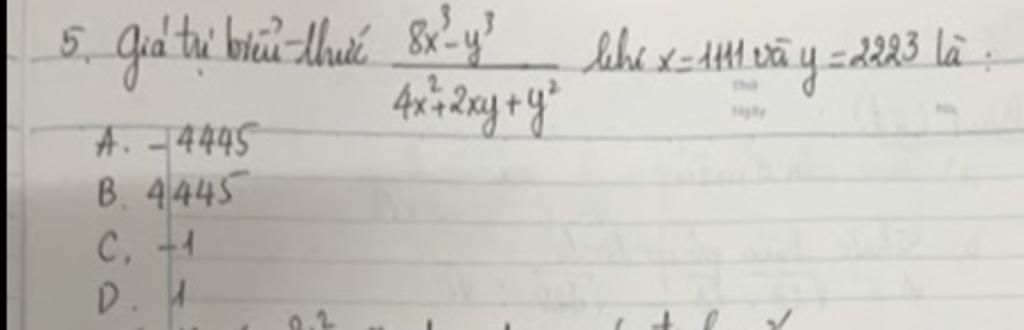 5. Giá trị biểu thức (8x³-y³)/(4x²+2xy+y²) khi x=1111 và y=2223 là:
A. -4445
B. 4445
C. -1
D. 1